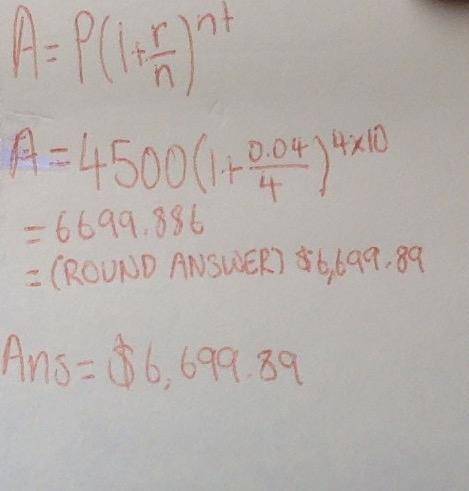 A = P(1+r/n)^nt
A = 4500(1+0.04/4)^4x10
= 6699.886
= (ROUND ANSWER) $6,699.89
Ans = $6,699.89